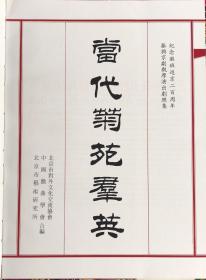 紀念徽班進京二百周年
振興京劇觀摩演出劇照集
當代菊苑羣英
北京市對外文化交流協會
中國戲曲學會合編
北京市藝術研究所